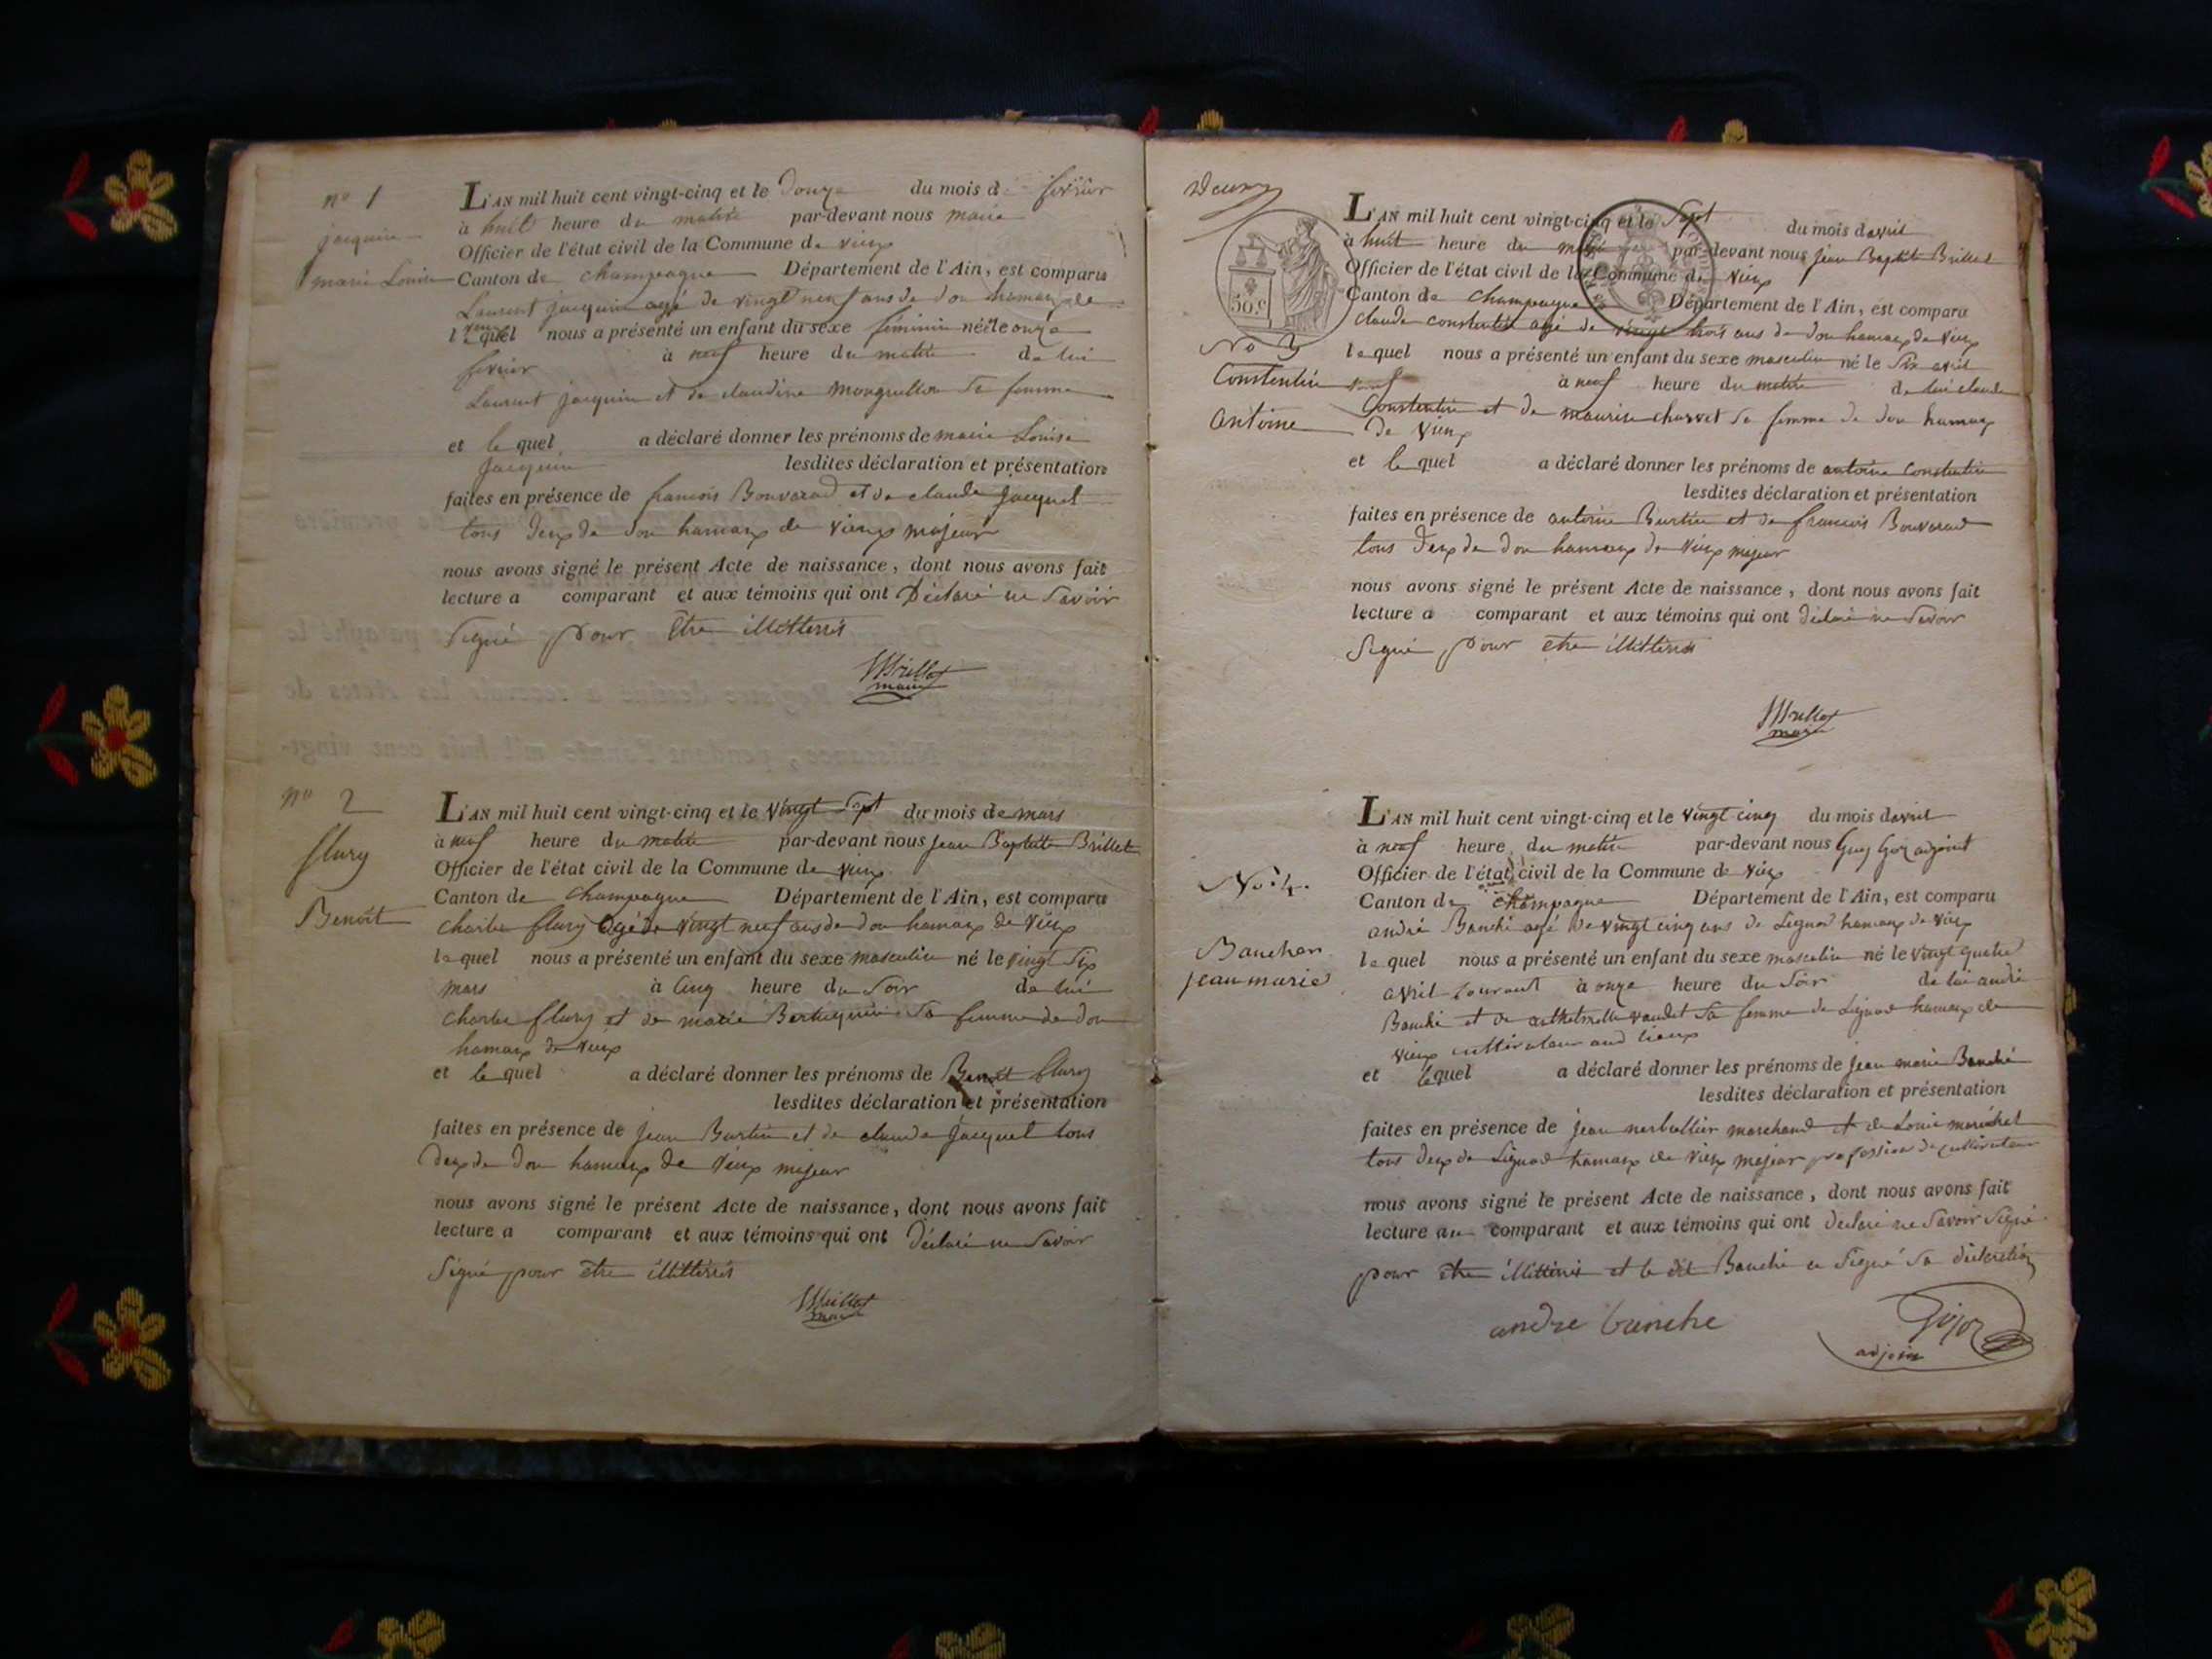 nº 1
jacquin
marie Louise
L'AN mil huit cent vingt-cinq et le douze du mois de fevrier
à huit heure du matin par-devant nous maire
Officier de l'état civil de la Commune de vieux
Canton de champagne Département de l'Ain, est comparu
Laurent jacquin agé de vingt neuf ans de don hamaux de
vieux
lequel nous a présenté un enfant du sexe feminin né le onze
fevrier à neuf heure du matin de lui
Laurent jacquin et de claudine sa femme
et lequel a déclaré donner les prénoms de marie Louise
jacquin lesdites déclaration et présentation
faites en présence de francois Bouvarad et de claude jacquet
tous deux de don hamaux de vieux majeur
nous avons signé le présent Acte de naissance, dont nous avons fait
lecture a comparant et aux témoins qui ont Déclaré ne Savoir
Signé pour être illitterés
Brillet
maire
nº 2
flury
Benoit
L'AN mil huit cent vingt-cinq et le vingt Sept du mois de mars
à neuf heure du matin par-devant nous jean Baptiste Brillet
Officier de l'état civil de la Commune de vieux
Canton de champagne Département de l'Ain, est comparu
charles flury agé de vingt neuf ans de don hamaux de vieux
lequel nous a présenté un enfant du sexe masculin né le vingt Six
mars à cinq heure du Soir de lui
charles flury et de marie Sa femme de don
hamaux de vieux
et lequel a déclaré donner les prénoms de Benoit flury
lesdites déclaration et présentation
faites en présence de jean Burtin et de claude jacquet tous
deux de don hamaux de vieux majeur
nous avons signé le présent Acte de naissance, dont nous avons fait
lecture a comparant et aux témoins qui ont Déclaré ne Savoir
Signé pour être illitterés
Brillet
maire
50 c
Nº 3
Constentin
antoine
L'AN mil huit cent vingt-cinq et le Sept du mois d'avril
à huit heure du matin par-devant nous jean Baptiste Brillet
Officier de l'état civil de la Commune de vieux
Canton de champagne Département de l'Ain, est comparu
claude constentin agé de vingt trois ans de don hamaux de vieux
lequel nous a présenté un enfant du sexe masculin né le Six avril
à neuf heure du matin de lui claude
Constentin et de maurise charvet Sa femme de don hamaux
de vieux
et lequel a déclaré donner les prénoms de antoine constentin
lesdites déclaration et présentation
faites en présence de antoine Burtin et de francois Bouvarad
tous deux de don hamaux de vieux majeur
nous avons signé le présent Acte de naissance, dont nous avons fait
lecture a comparant et aux témoins qui ont déclaré ne Savoir
Signé pour etre illitterés
Brillet
maire
Nº 4.
Banchon
jean marie
L'AN mil huit cent vingt-cinq et le vingt cinq du mois d'avril
à neuf heure du matin par-devant nous Guy adjoint
Officier de l'état civil de la Commune de vieux
Canton de champagne Département de l'Ain, est comparu
andré Banché agé de vingt cinq ans de Lignod hamaux de vieux
lequel nous a présenté un enfant du sexe masculin né le vingt quatre
avril courant à onze heure du Soir de lui andré
Banché et de Sa femme de Lignod hamaux de
vieux cultivateur
et lequel a déclaré donner les prénoms de jean marie Banché
lesdites déclaration et présentation
faites en présence de jean marchand et de Louis maréchal
tous deux de Lignod hamaux de vieux majeur profession de cultivateur
nous avons signé le présent Acte de naissance, dont nous avons fait
lecture au comparant et aux témoins qui ont déclaré ne Savoir Signé
pour être illitterés et le dit Banché a Signé Sa déclaration
andre banche
adjoin